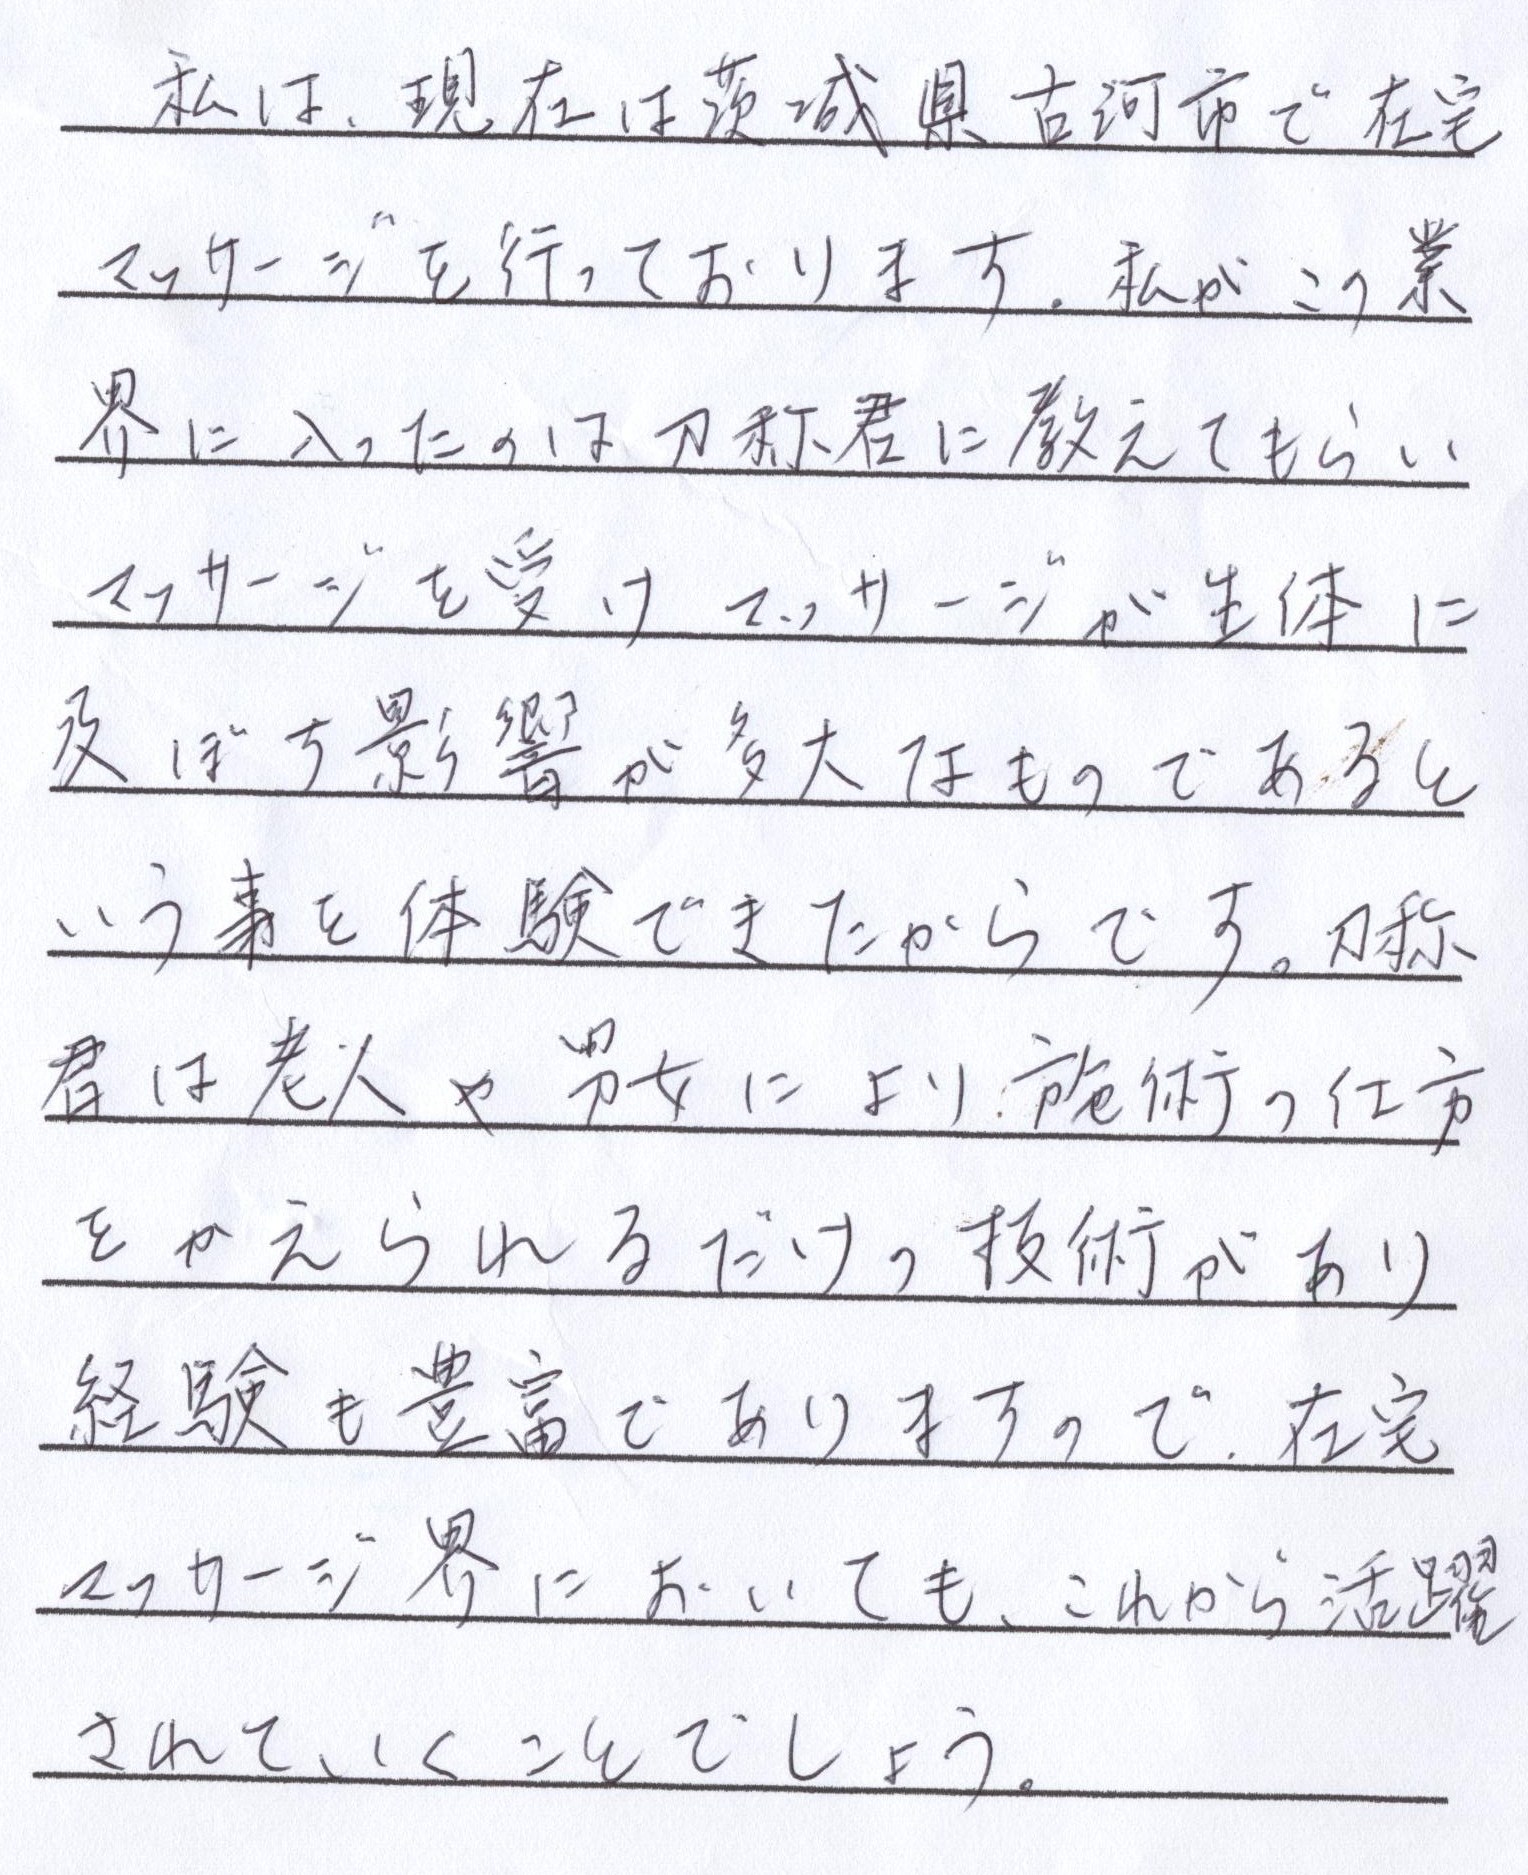 私は、現在は茨城県古河市で在宅
マッサージを行っております。私がこの業
界に入ったのは刀称君に教えてもらい
マッサージを受けマッサージが生体に
及ぼす影響が多大なものであると
いう事を体験できたからです。刀称
君は老人や男女により、施術の仕方
をかえられるだけの技術があり
経験も豊富でありますので、在宅
マッサージ界においても、これから活躍
されていくことでしょう。